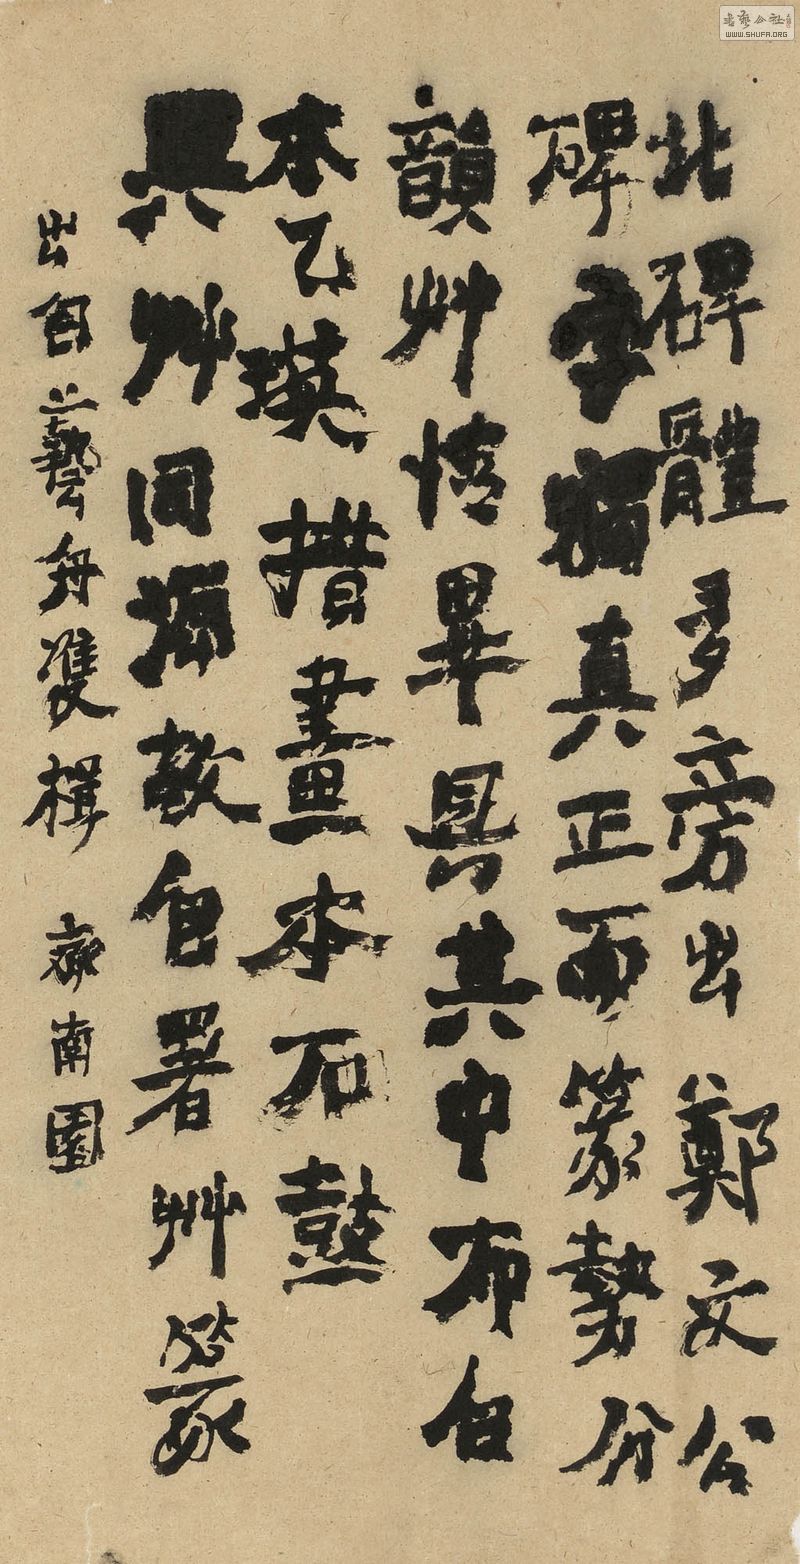 北碑體多旁出鄭文公
碑字獨真正而篆勢分
韻艸情畢具其中布白
本乙瑛措畫本石鼓
與艸同源故自署艸篆
出自藝舟雙楫 齊南園
書藝公社
WWW.SHUFA.ORG